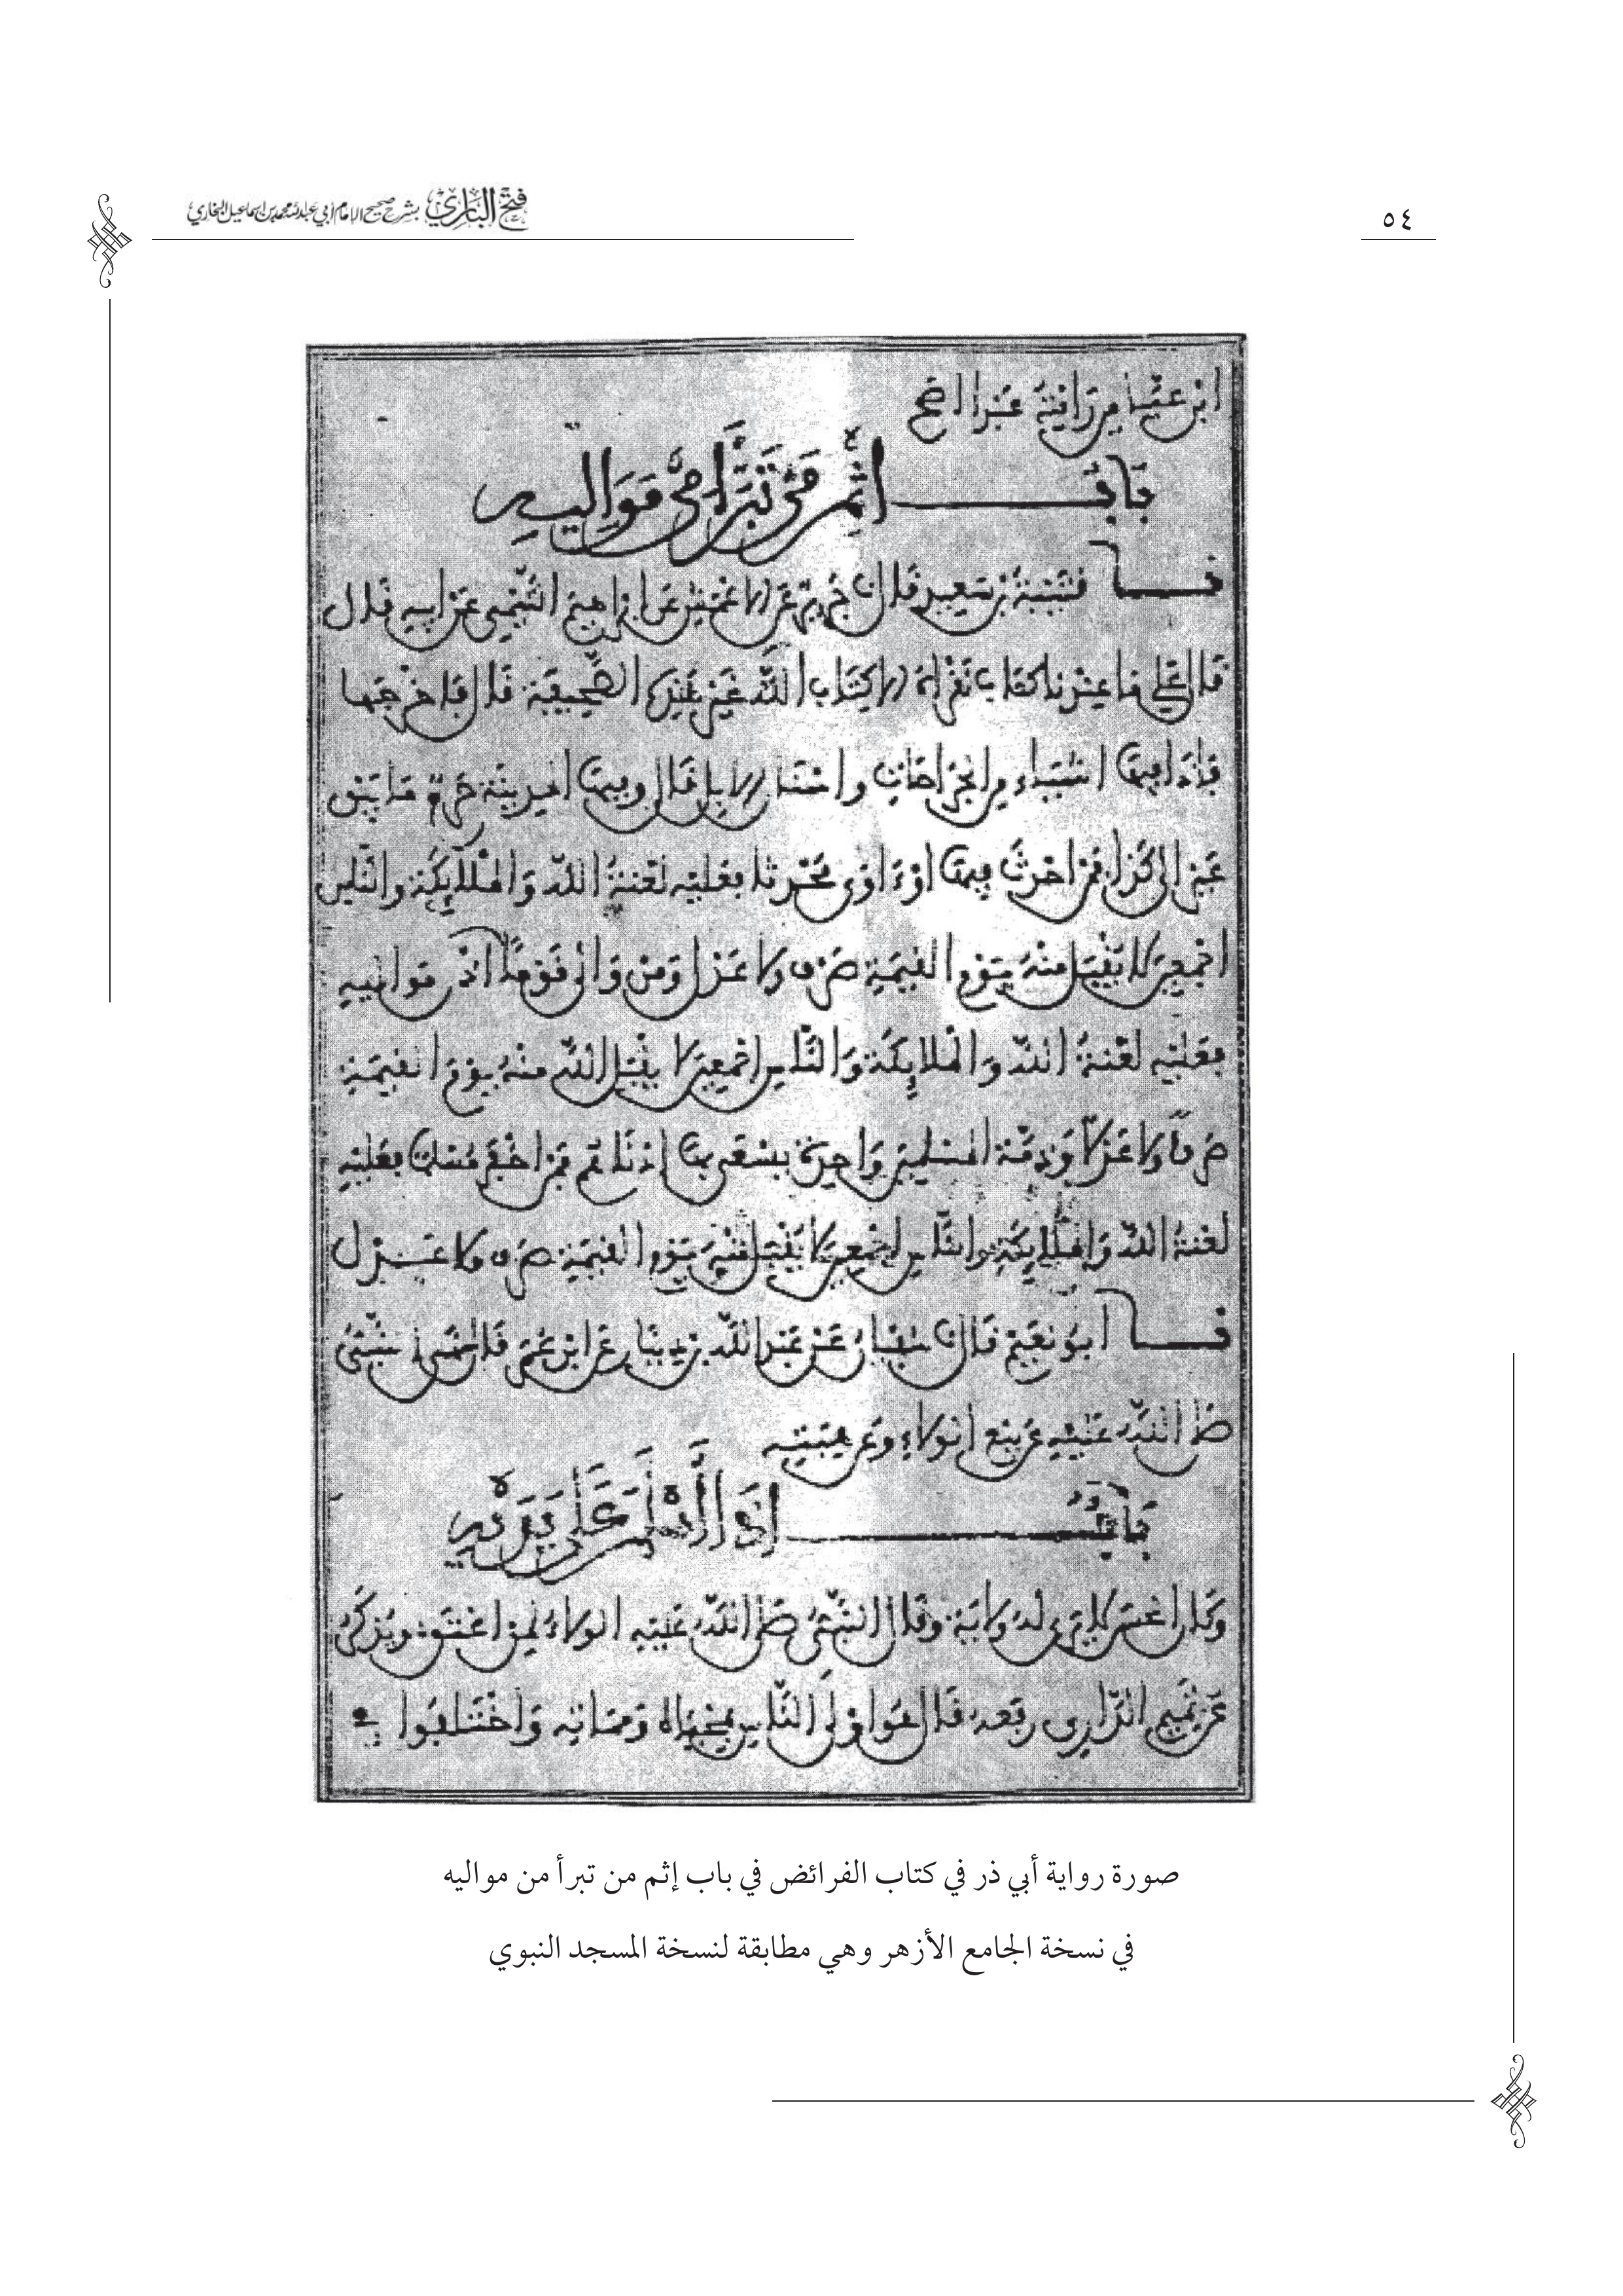 فتح الباري بشرح صحيح الإمام أبي عبدالله محمد بن إسماعيل البخاري
٥٤
ابن عباس رأيته عبدا أصح
باب إثم من تبرأ من مواليه
نا قتيبة بن سعيد قال نا جرير عن الاعمش عن ابراهيم التيمي عن ابيه قال
قال علي ما عندنا كتاب نقرأه الا كتاب الله غير هذه الصحيفة قال فاخرجها
فإذا فيها اشياء من الجراحات واسنان الابل قال وفيها المدينة حرم ما بين
عير الى كذا فمن احدث فيها او اوى محدثا فعليه لعنة الله والملائكة والناس
اجمعين لا يقبل منه يوم القيمة صرف ولا عدل ومن والى قوما مواليه
فعليه لعنة الله والملائكة والناس اجمعين لا يقبل الله منه يوم القيمة
صرفا ولا عدلا وذمة المسلمين واحدة يسعى بها ادناهم فمن اخفر مسلما فعليه
لعنة الله والملائكة والناس اجمعين لا يقبل منه يوم القيمة صرف ولا عدل
نا أبو نعيم قال نا سفيان عن عبد الله بن دينار عن ابن عمر قال نهى النبي
صلى الله عليه عن بيع الولاء وعن هبته
باب إذا أسلم على يديه
وكان الحسن لا يرى له ولاية وقال النبي صلى الله عليه الولاء لمن اعتق ويذكر
عن تميم الداري رفعه قال هو اولى الناس بمحياه ومماته واختلفوا في
صورة رواية أبي ذر في كتاب الفرائض في باب إثم من تبرأ من مواليه
في نسخة الجامع الأزهر وهي مطابقة لنسخة المسجد النبوي